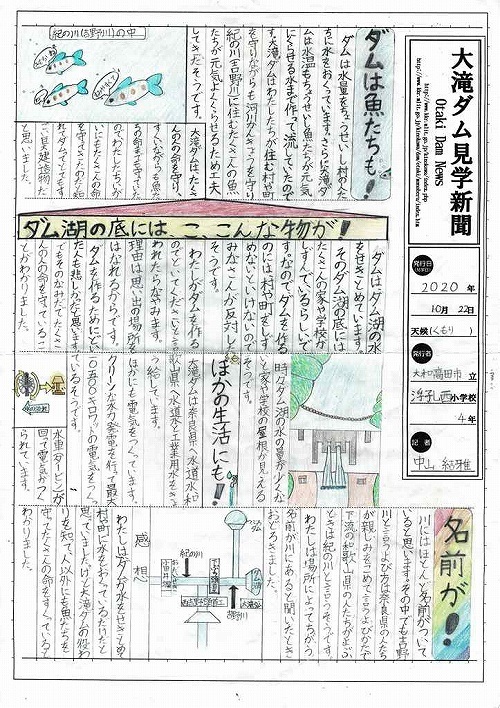 大滝ダム見学新聞
Otaki Dam News
発行日
2020年
10月22日
天候(くもり)
発行者
大和高田市立
浮孔西小学校
4年
記者
中山 結雅
名前が!
川にはほとんど名前がついて
いると思います。その中でも吉野
川と言うよび方は奈良県の人たち
が親しみをこめて言うよびかたで
下流の和歌山県の人たちがよぶ
ときは紀の川と言うそうです。
わたしは場所によってちがう
名前が川にあると聞いたとき
おどろきました。
ダム湖
吉野川
紀の川
感想
わたしはダムの水をせき止めて
村や町に水をおくっているだけと
思っていましたけど大滝ダムの役わ
りを知って、人以外にも魚たちを
守ってたくさんの命をすくっていると
わかりました。
ダム湖の底には、こ、こんな物が!
ダムはダム湖の水
をせきとめています。
そのダム湖の底には
たくさんの家や学校が
しずんでいるらしいで
す。なのでダムを作る
のには、村や町をしず
めないといけないので
みなさんが反対した
そうです。
わたしがダムを作る
のでどいてくださいと言
われたらなやみます。
理由は思い出の場所を
はなれるからです。
ダムを作るためにどい
た人も悲しかったと思います。
でもそのなみだでたくさ
んの人の命を守っているこ
とがわかりました。
時々ダム湖の水の量が少くな
いと家や学校の屋根が見える
そうです。
ほかの生活にも!
大滝ダムは奈良県へ水道水、和
歌山県へ水道水と工業用水をきょ
う給しています。
ほかにも電気をつくっています。
クリーンな水力発電を行って最大
10500キロワットの電気をつくっ
ているそうです。
水の流れ
水車(タービン)が
回って電気がつく
られています。
ダムは魚たちも!
ダムは水量をちょうせいし村の人た
ちに水をおくっています。さらに大滝ダ
ムは水温もちょうせいし魚たちが元気
にくらせる水まで作って流しているので
す。大滝ダムはわたしたちが住む村や町
を守りながらも河川かんきょうを守り
紀の川(吉野川)に住むたくさんの魚
たちが元気よくくらせるため工夫
してきたそうです。
大滝ダムは、たくさ
んの人の命を守り、
すいせいから魚たち
の命まで守っている
のでわたしたちいが
いにもたくさんの命
を守ってきたのです。
ダムってとってもす
ごい巨大建造物だ
と思いました。
紀の川(吉野川)の中